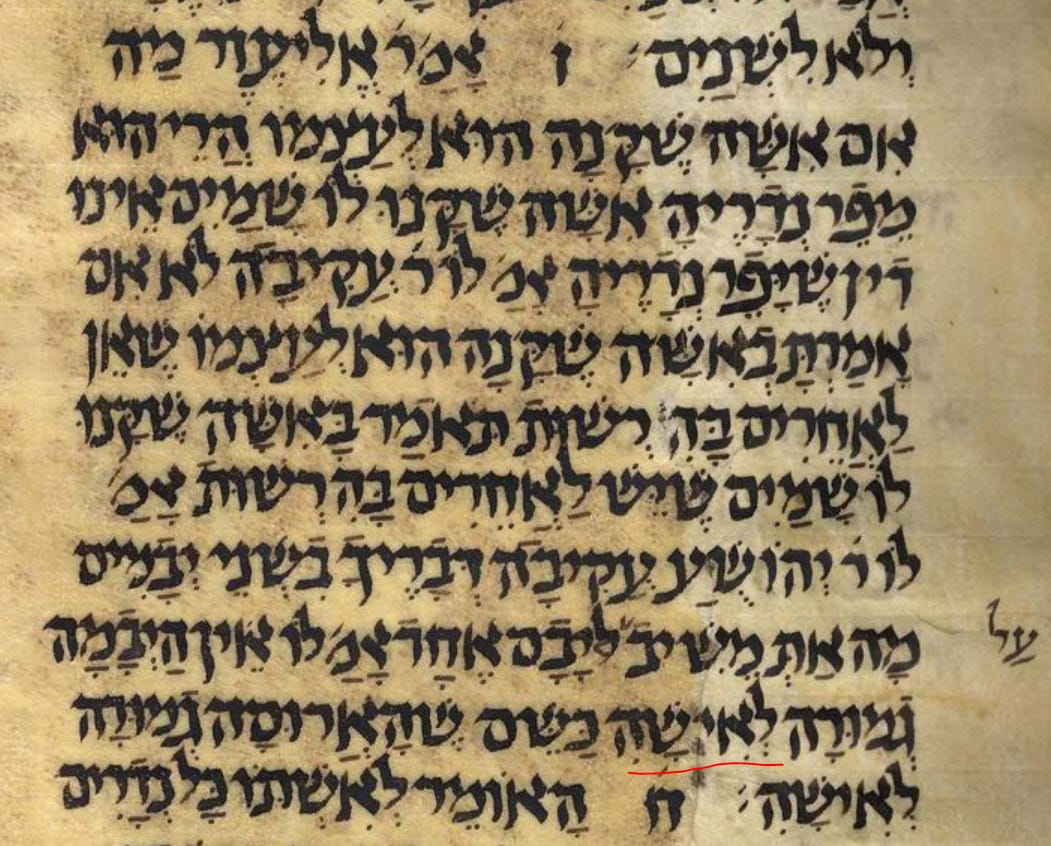 וְלֹא לִשְׁנַיִם ז אָמַ' ר' אֱלִיעֶזֶר מַה
אִם אִשָּׁה שֶׁקָּנָה הוּא לְעַצְמוֹ הֲרֵי הוּא
מֵפֵר נְדָרֶיהָ אִשָּׁה שֶׁקָּנוּ לוֹ שָׁמַיִם אֵינוּ
דִין שֶׁיָּפֵר נְדָרֶיהָ אָמַ' לוֹ ר' עֲקִיבָה לֹא אִם
אָמַרְתָּ בְאִשָּׁה שֶׁקָּנָה הוּא לְעַצְמוֹ שֶׁאֵן
לַאֲחֵרִים בָּהּ רְשׁוּת תֹּאמַר בָּאִשָּׁה שֶׁקָּנוּ
לוֹ שָׁמַיִם שֶׁיֵּשׁ לַאֲחֵרִים בָּהּ רְשׁוּת אָמַ'
לוֹ ר' יְהוֹשֻׁעַ עֲקִיבָה דְּבָרֶיךָ בִּשְׁנֵי יְבָמִים
עַל
מָה אַתְּ מֵשִׁיב לְיָבָם אֶחָד אָמַ' לוֹ אֵין הַיְבָמָה
גְמוּרָה לְאִישָׁהּ כַּשֵּׁם שֶׁהָאֲרוּסָה גְמוּרָה
לְאִישָׁהּ ח הָאוֹמֵר לְאִשְׁתּוֹ כָּל נְדָרִים